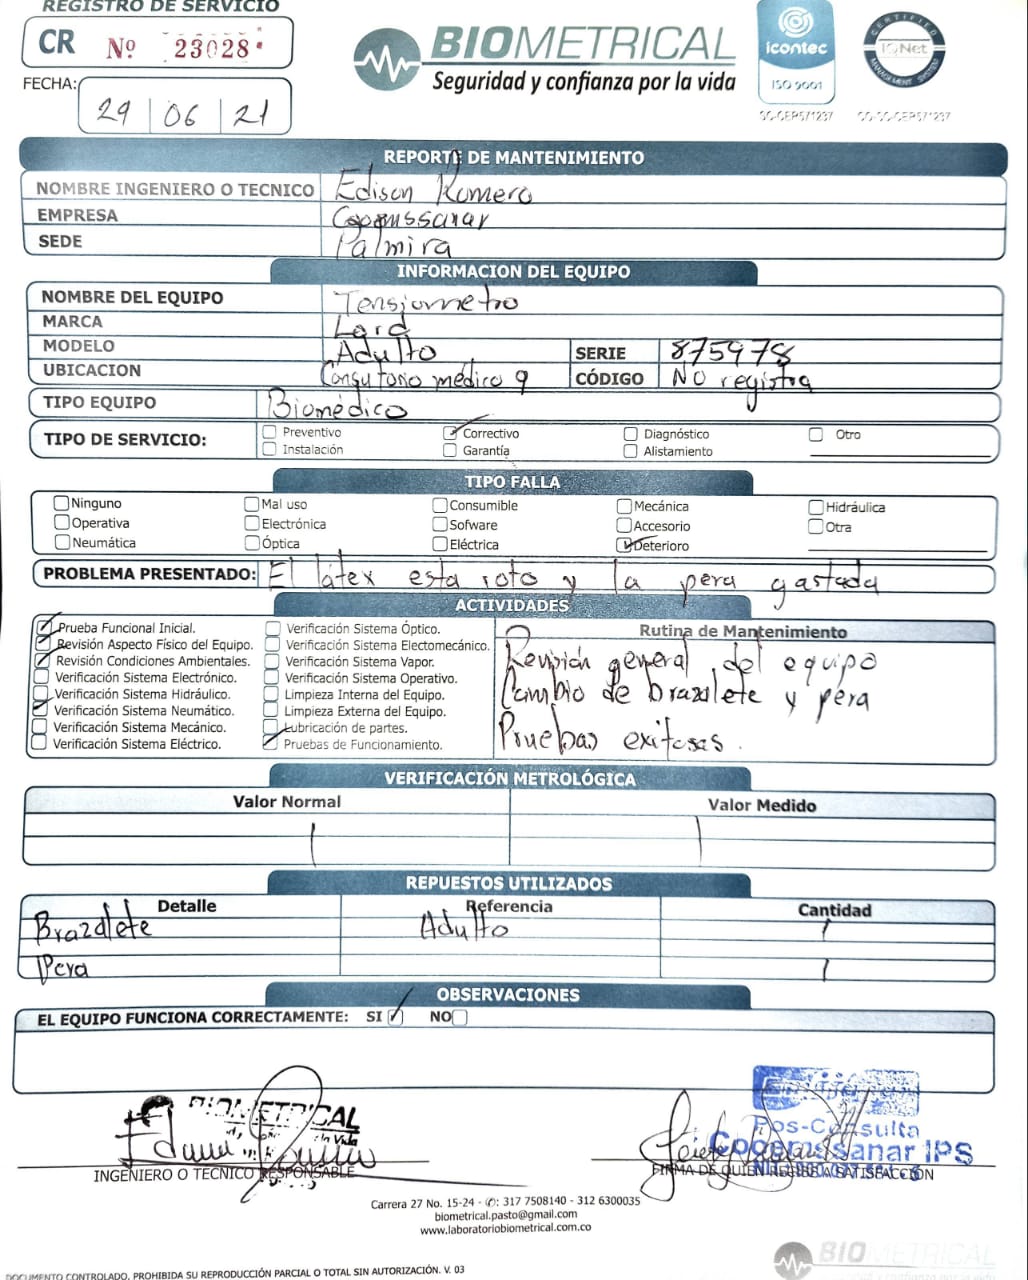 REGISTRO DE SERVICIO
CR Nº 23028
FECHA: 29 | 06 | 21
BIOMETRICAL
Seguridad y confianza por la vida
icontec
ISO 9001
SC-CER571237
CERTIFIED
IQNet
MANAGEMENT SYSTEM
CO-SC-CER571237
REPORTE DE MANTENIMIENTO
NOMBRE INGENIERO O TECNICO Edison Romero
EMPRESA
SEDE Palmira
INFORMACION DEL EQUIPO
NOMBRE DEL EQUIPO Tensiometro
MARCA Lord
MODELO Adulto SERIE 875978
UBICACION Consultorio médico 9 CÓDIGO No registra
TIPO EQUIPO Biomédico
TIPO DE SERVICIO: Preventivo Correctivo Diagnóstico Otro
Instalación Garantía Alistamiento
TIPO FALLA
Ninguno Mal uso Consumible Mecánica Hidráulica
Operativa Electrónica Sofware Accesorio Otra
Neumática Óptica Eléctrica Deterioro
PROBLEMA PRESENTADO: El látex esta roto y la pera gastada
ACTIVIDADES
Prueba Funcional Inicial.
Revisión Aspecto Físico del Equipo.
Revisión Condiciones Ambientales.
Verificación Sistema Electrónico.
Verificación Sistema Hidráulico.
Verificación Sistema Neumático.
Verificación Sistema Mecánico.
Verificación Sistema Eléctrico.
Verificación Sistema Óptico.
Verificación Sistema Electomecánico.
Verificación Sistema Vapor.
Verificación Sistema Operativo.
Limpieza Interna del Equipo.
Limpieza Externa del Equipo.
Lubricación de partes.
Pruebas de Funcionamiento.
Rutina de Mantenimiento
Revisión general del equipo
Cambio de brazalete y pera
Pruebas exitosas.
VERIFICACIÓN METROLÓGICA
Valor Normal Valor Medido
REPUESTOS UTILIZADOS
Detalle Referencia Cantidad
Brazalete Adulto 1
Pera 1
OBSERVACIONES
EL EQUIPO FUNCIONA CORRECTAMENTE: SI NO
BIOMETRICAL
la Vida
INGENIERO O TECNICO RESPONSABLE
Pos-Consulta
Cogemssanar IPS
FIRMA DE QUIEN RECIBE A SATISFACCIÓN
Carrera 27 No. 15-24 - ✆: 317 7508140 - 312 6300035
biometrical.pasto@gmail.com
www.laboratoriobiometrical.com.co
BIOMETRICAL
Seguridad y confianza por la vida
DOCUMENTO CONTROLADO, PROHIBIDA SU REPRODUCCIÓN PARCIAL O TOTAL SIN AUTORIZACIÓN. V. 03